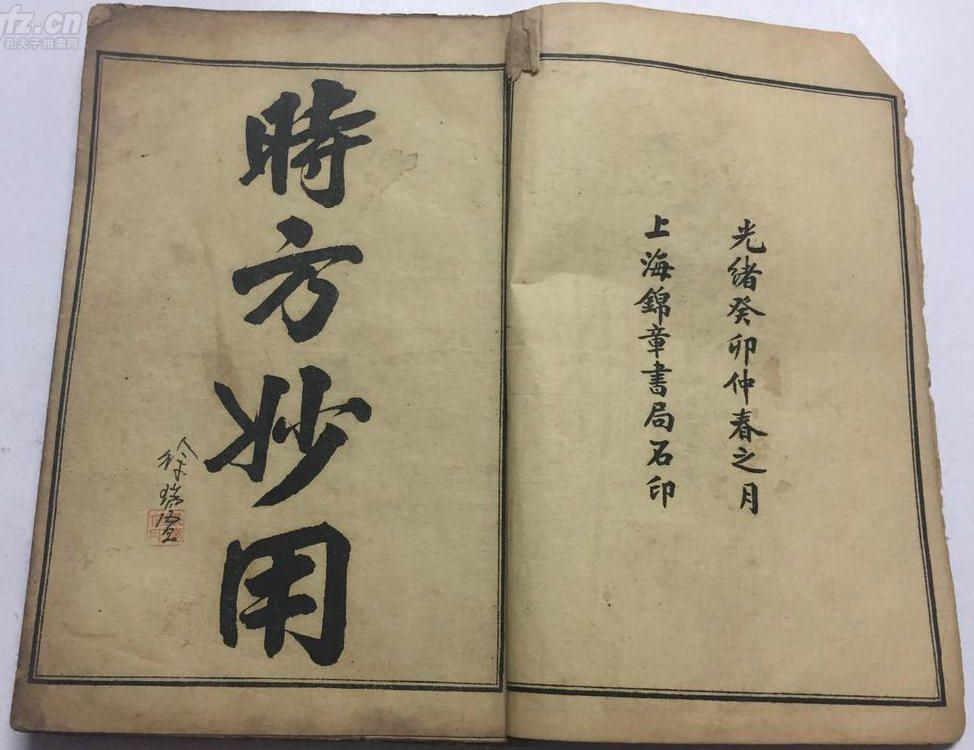 fz.cn
孔夫子拍卖网
光緒癸卯仲春之月
上海錦章書局石印
時方妙用
徐瑞